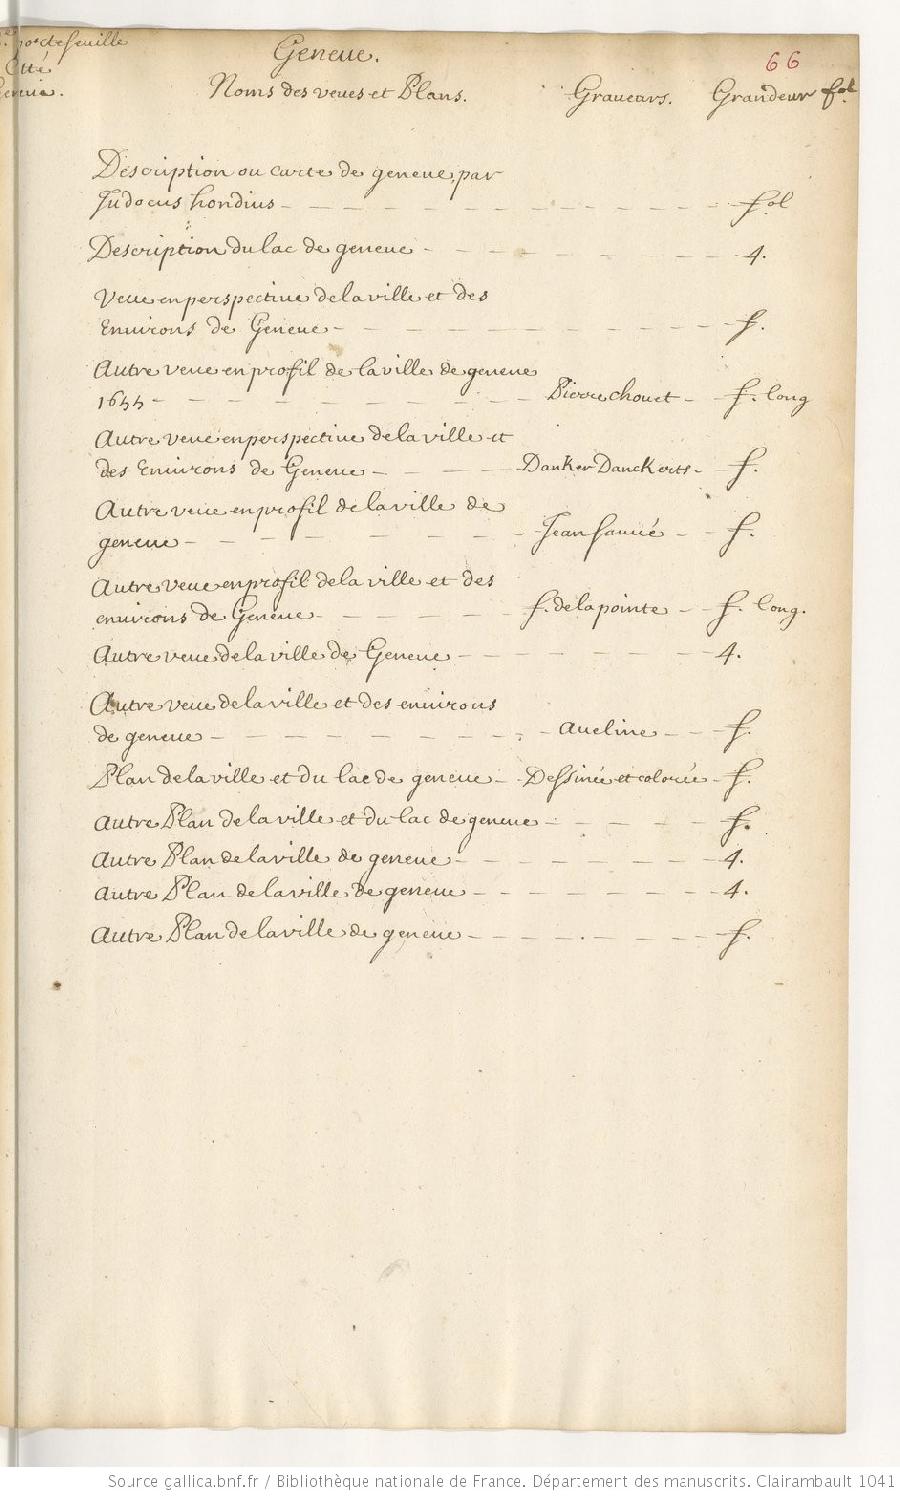 portefeuille
Geneue.
66
Noms des veues et Plans. Graueurs. Grandeur fol
Description ou carte de geneue par
Judocus hondius - fol
Description du lac de geneue - 4.
Veue en perspectiue de la ville et des
Enuirons de Geneue - f.
Autre veue en profil de la ville de geneue
1655 - Pierre chouet - f. long
Autre veue en perspectiue de la ville et
des Enuirons de Geneue - Danker Danckerts - f.
Autre veue en profil de la ville de
geneue - Jean - f.
Autre veue en profil de la ville et des
enuirons de Geneue - f. de la pointe - f. long.
Autre veue de la ville de Geneue - 4.
Autre veue de la ville et des enuirons
de geneue - aueline - f.
Plan de la ville et du lac de geneue - Dessinée et colorée - f.
Autre Plan de la ville et du lac de geneue - f.
Autre Plan de la ville de geneue - 4.
Autre Plan de la ville de geneue - 4.
Autre Plan de la ville de geneue - f.
Source gallica.bnf.fr / Bibliothèque nationale de France. Département des manuscrits. Clairambault 1041